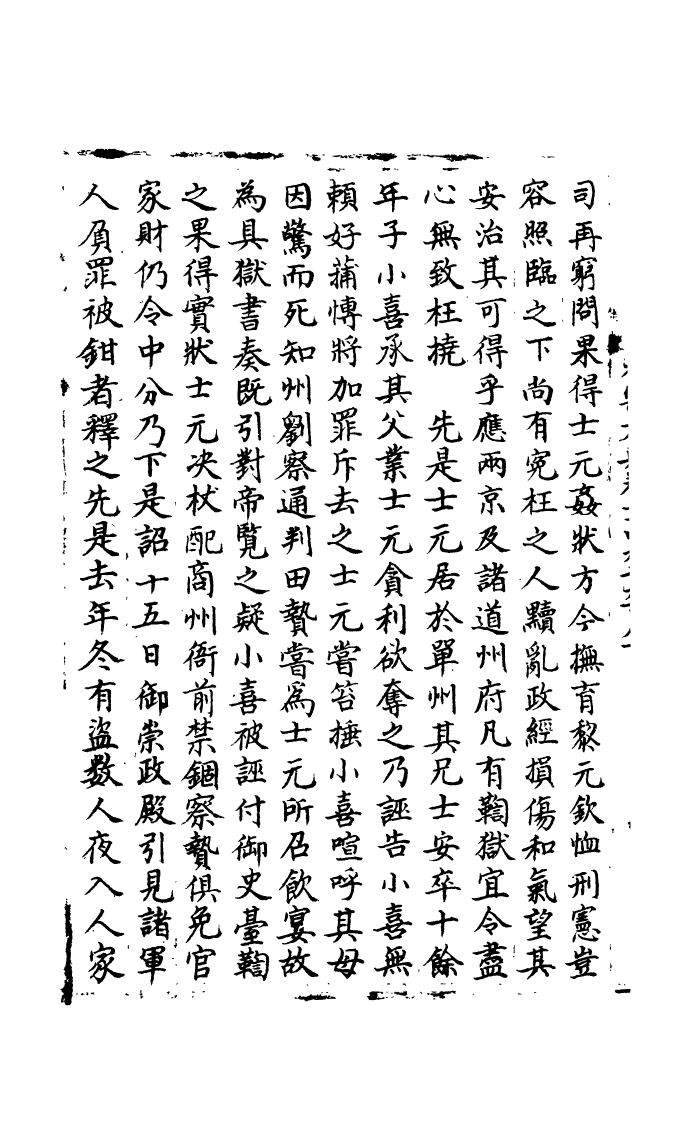 司再窮問果得士元姦狀方今撫育黎元欽恤刑憲豈
容照臨之下尚有寃枉之人黷亂政經損傷和氣望其
安治其可得乎應兩京及諸道州府凡有鞫獄宜令盡
心無致枉撓　先是士元居於單州其兄士安卒十餘
年子小喜承其父業士元貪利欲奪之乃誣告小喜無
賴好蒱愽將加罪斥去之士元嘗笞捶小喜喧呼其母
因驚而死知州劉察通判田贄嘗爲士元所召飲宴故
為具獄書奏既引對帝覽之疑小喜被誣付御史臺鞫
之果得實狀士元决杖配商州衙前禁錮察贄俱免官
家財仍令中分乃下是詔十五日御崇政殿引見諸軍
人負罪被鉗者釋之先是去年冬有盜数人夜入人家